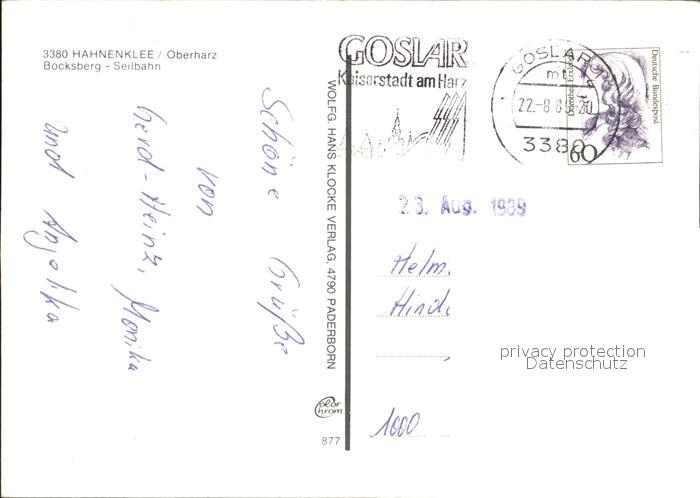 3380 HAHNENKLEE / Oberharz
Bocksberg - Seilbahn
Schöne Grüße
von
Gerd-Heinz, Monika
und Angelika
WOLFG. HANS KLOCKE VERLAG, 4790 PADERBORN
Color
chrom
877
GOSLAR
Kaiserstadt am Harz
GOSLAR
mt
22.-8.89-20
3380
Deutsche Bundespost
60
23. Aug. 1989
Helm.
Hind
1000
privacy protection
Datenschutz